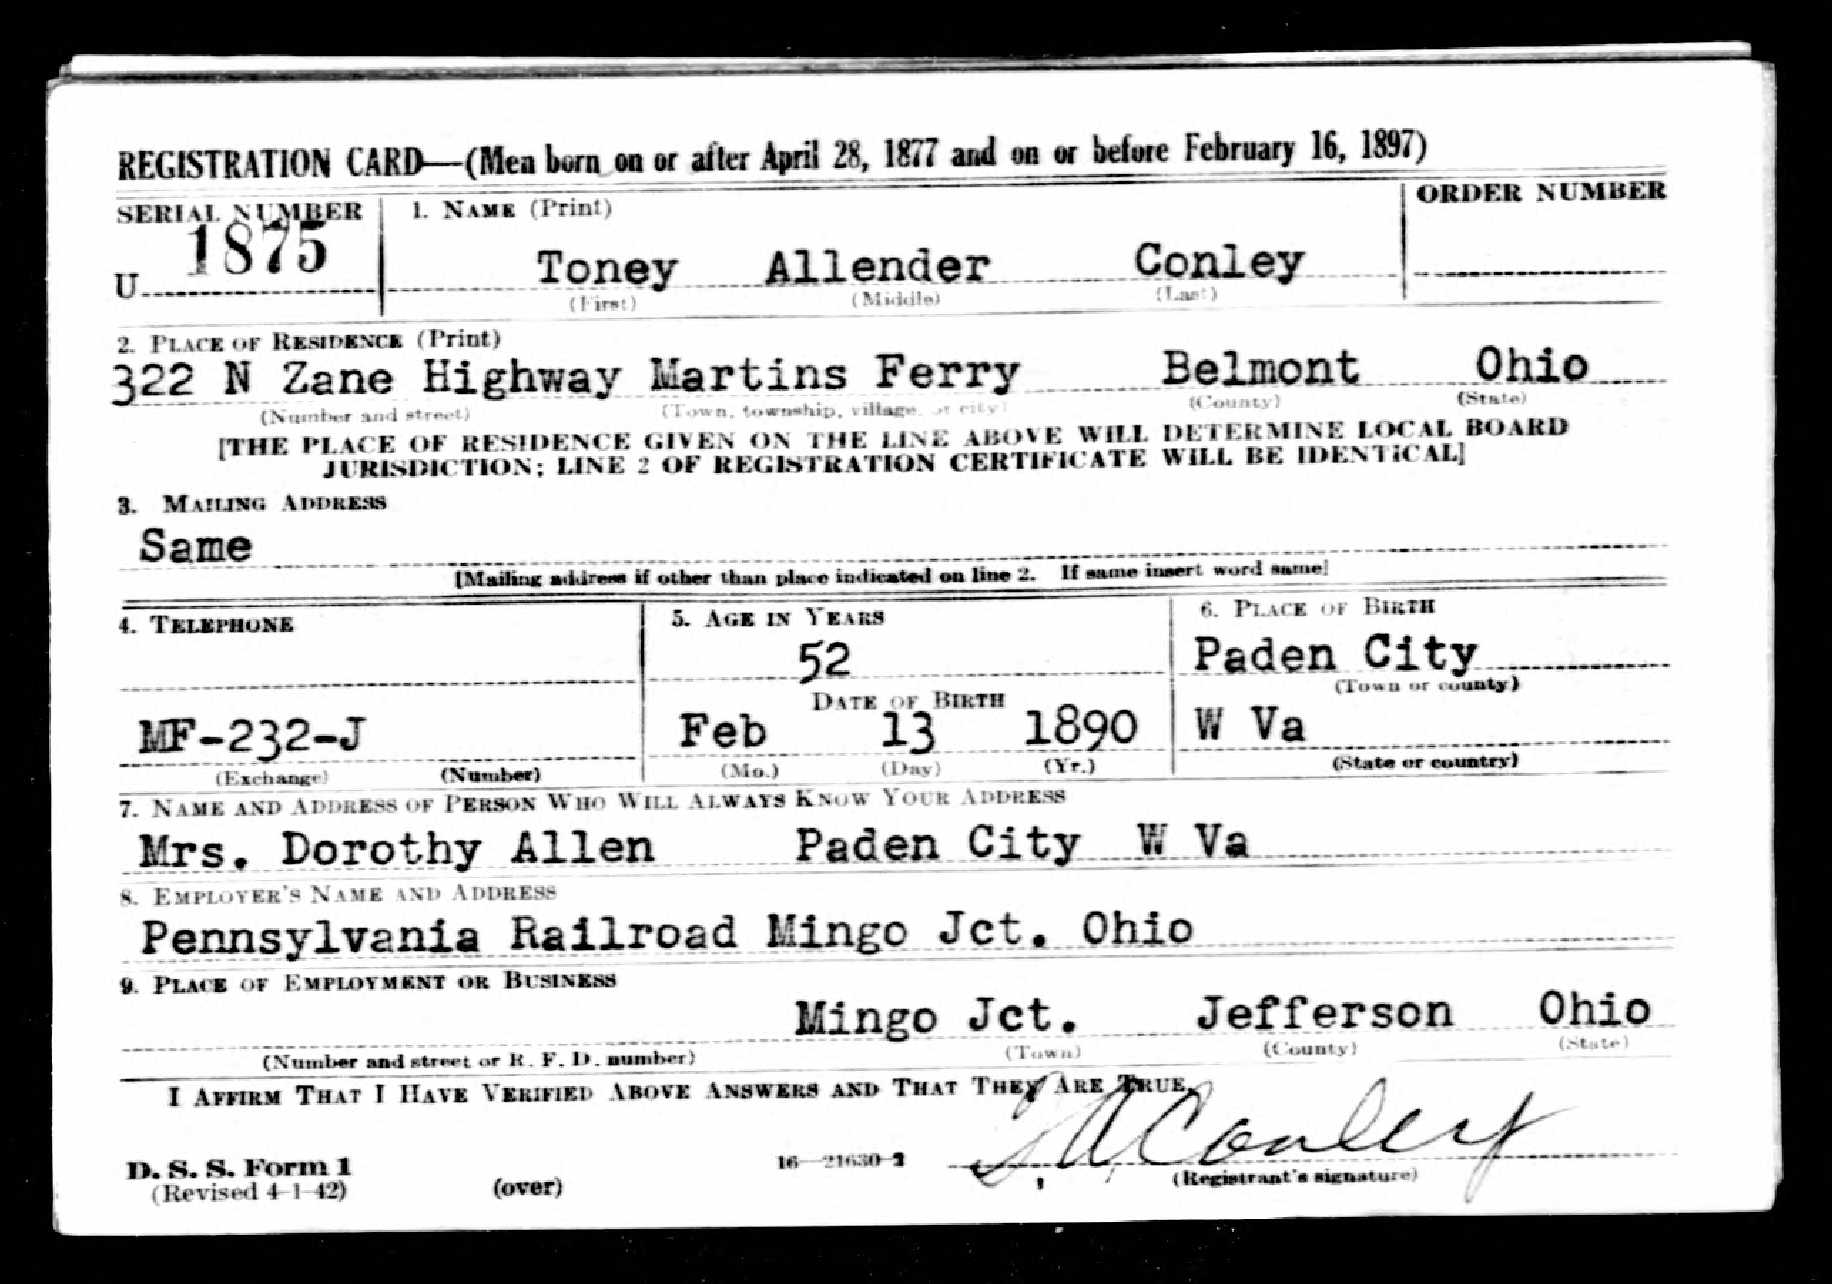 REGISTRATION CARD—(Men born on or after April 28, 1877 and on or before February 16, 1897)
SERIAL NUMBER
1. NAME (Print)
ORDER NUMBER
U 1875
Toney Allender Conley
(First) (Middle) (Last)
2. PLACE OF RESIDENCE (Print)
322 N Zane Highway Martins Ferry Belmont Ohio
(Number and street) (Town, township, village, or city) (County) (State)
[THE PLACE OF RESIDENCE GIVEN ON THE LINE ABOVE WILL DETERMINE LOCAL BOARD
JURISDICTION; LINE 2 OF REGISTRATION CERTIFICATE WILL BE IDENTICAL]
3. MAILING ADDRESS
Same
[Mailing address if other than place indicated on line 2. If same insert word same]
4. TELEPHONE
5. AGE IN YEARS
6. PLACE OF BIRTH
52
Paden City
(Town or county)
DATE OF BIRTH
MF-232-J
Feb 13 1890
W Va
(Exchange) (Number)
(Mo.) (Day) (Yr.)
(State or country)
7. NAME AND ADDRESS OF PERSON WHO WILL ALWAYS KNOW YOUR ADDRESS
Mrs. Dorothy Allen Paden City W Va
8. EMPLOYER'S NAME AND ADDRESS
Pennsylvania Railroad Mingo Jct. Ohio
9. PLACE OF EMPLOYMENT OR BUSINESS
Mingo Jct. Jefferson Ohio
(Number and street or R. F. D. number) (Town) (County) (State)
I AFFIRM THAT I HAVE VERIFIED ABOVE ANSWERS AND THAT THEY ARE TRUE.
T. A. Conley
D. S. S. Form 1
(Revised 4-1-42)
(over)
16—21630-2
(Registrant's signature)